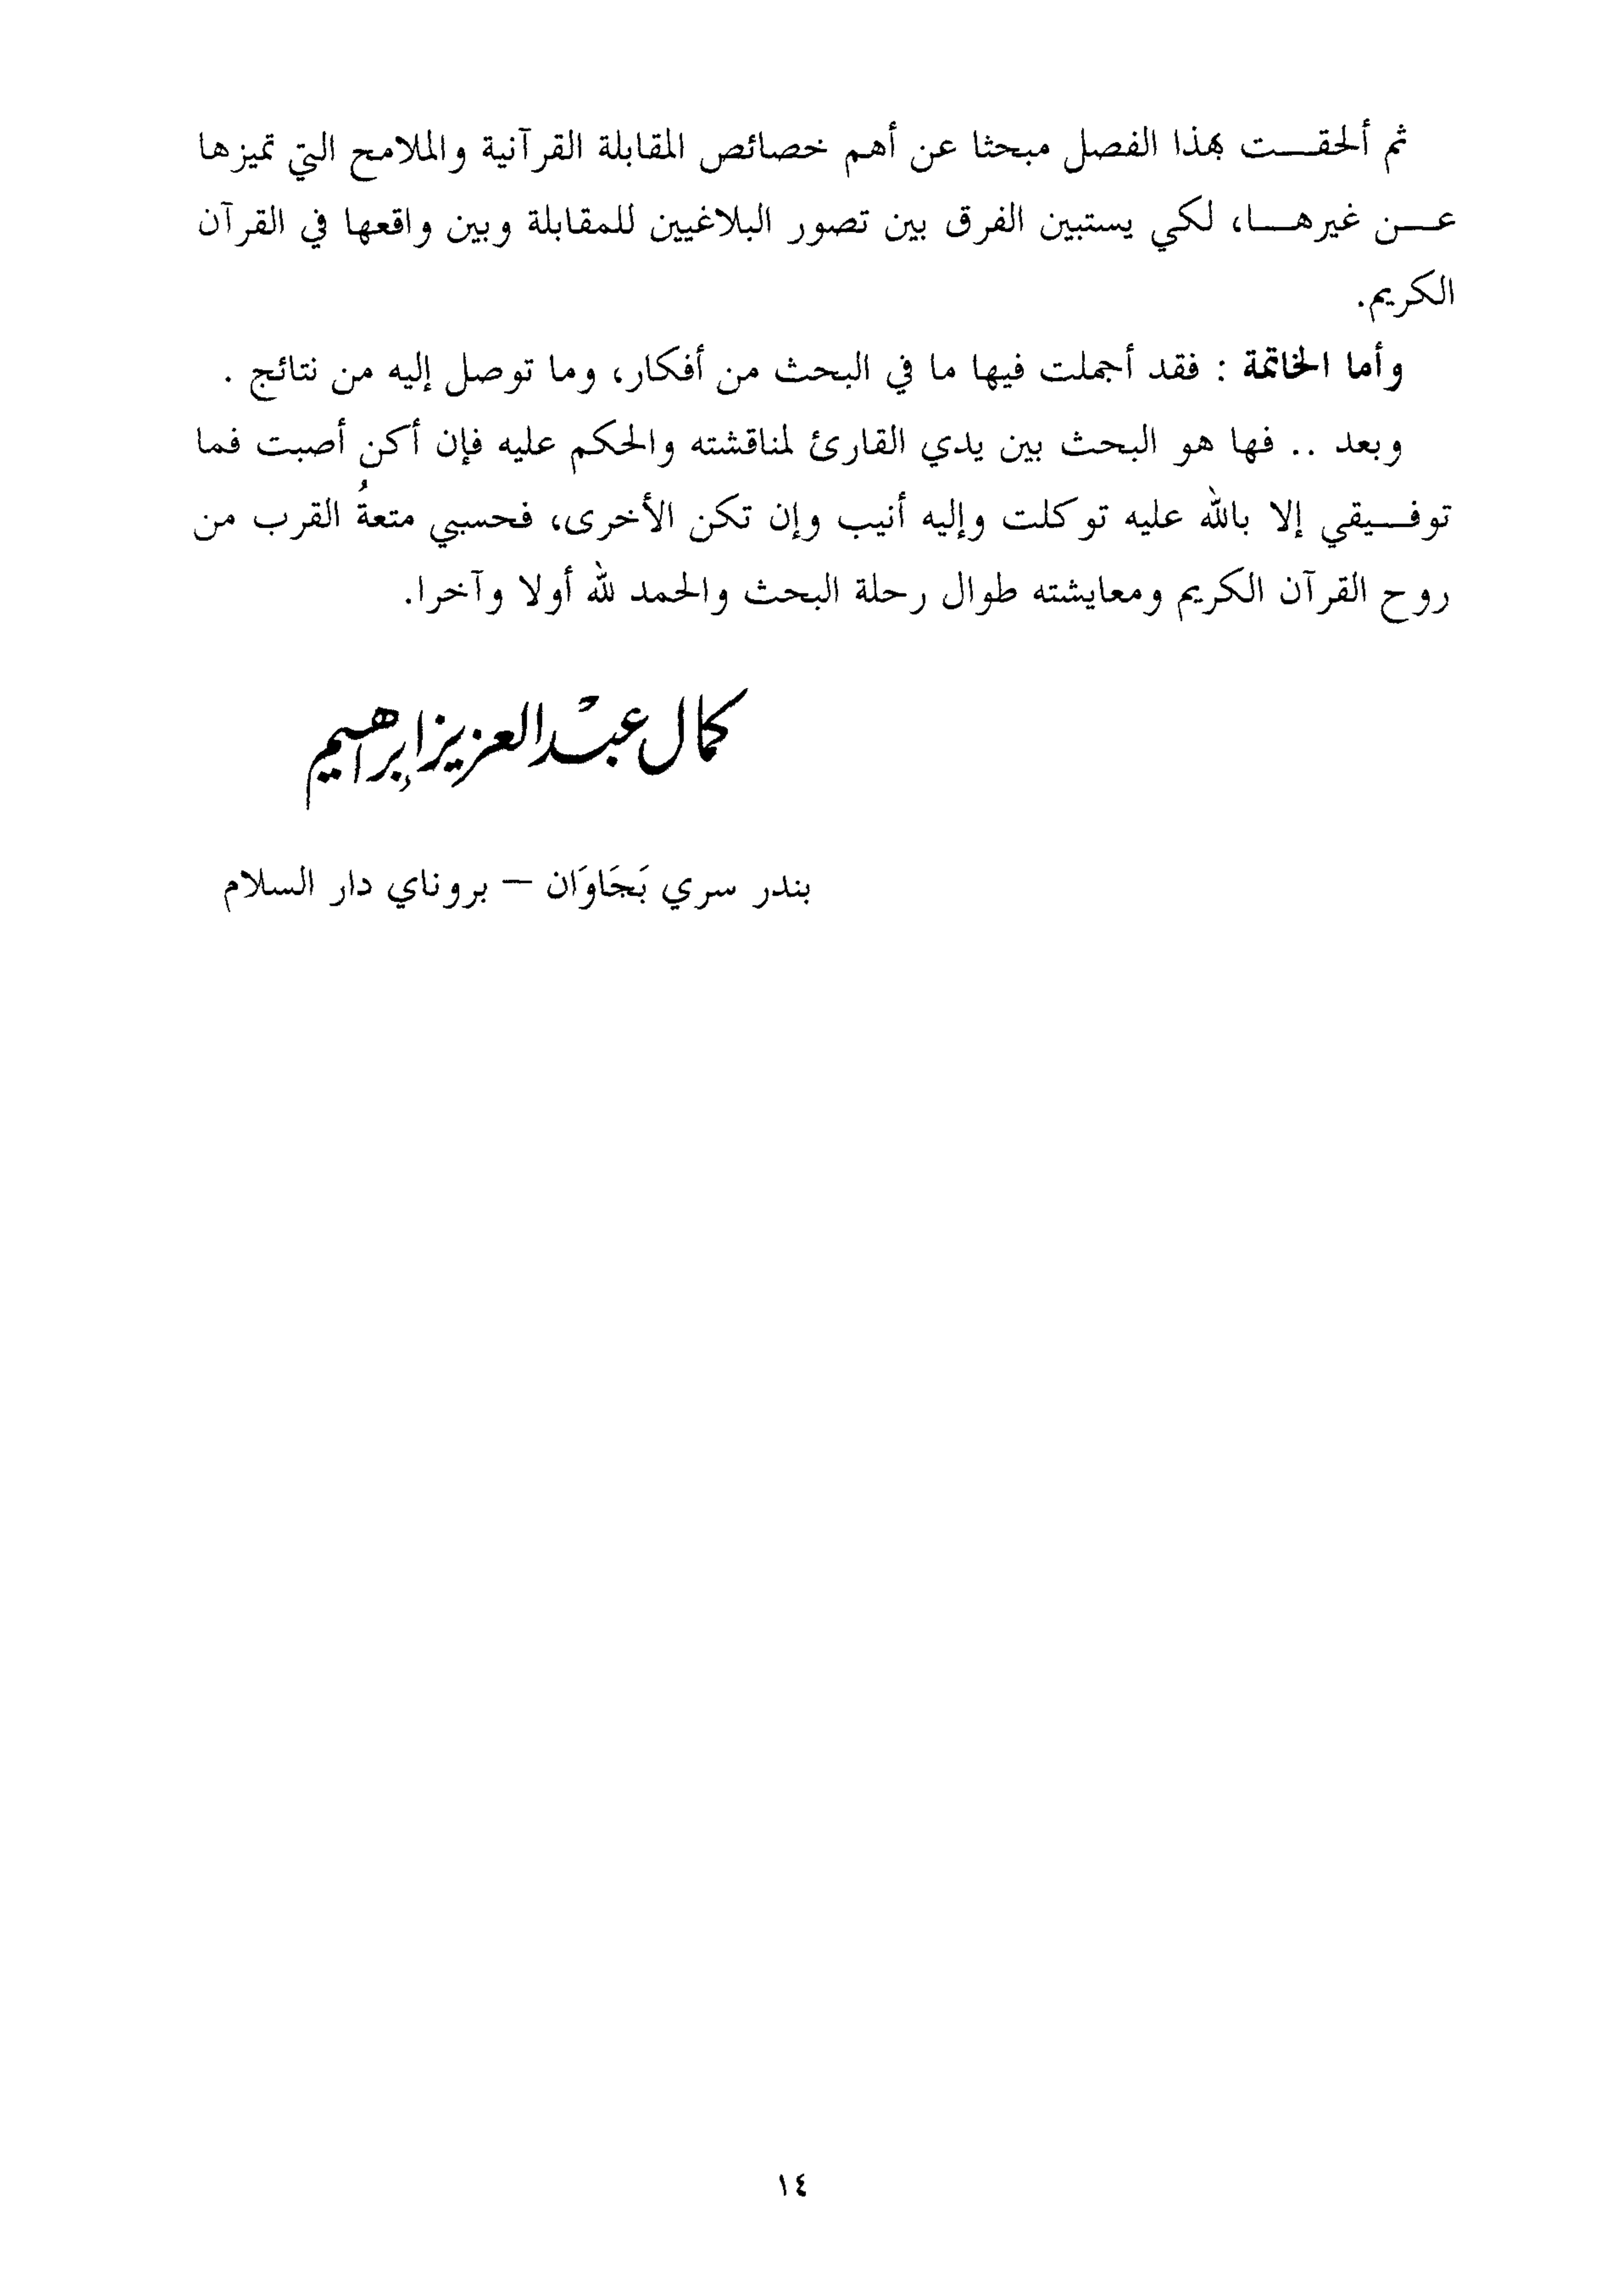 ثم ألحقت بهذا الفصل مبحثا عن أهم خصائص المقابلة القرآنية والملامح التي تميزها
عن غيرها، لكي يستبين الفرق بين تصور البلاغيين للمقابلة وبين واقعها في القرآن
الكريم.
وأما الخاتمة : فقد أجملت فيها ما في البحث من أفكار، وما توصل إليه من نتائج .
وبعد .. فها هو البحث بين يدي القارئ لمناقشته والحكم عليه فإن أكن أصبت فما
توفيقي إلا بالله عليه توكلت وإليه أنيب وإن تكن الأخرى، فحسبي متعةُ القرب من
روح القرآن الكريم ومعايشته طوال رحلة البحث والحمد لله أولا وآخرا.
كمال عبد العزيز إبراهيم
بندر سري بَجَاوَان – بروناي دار السلام
١٤